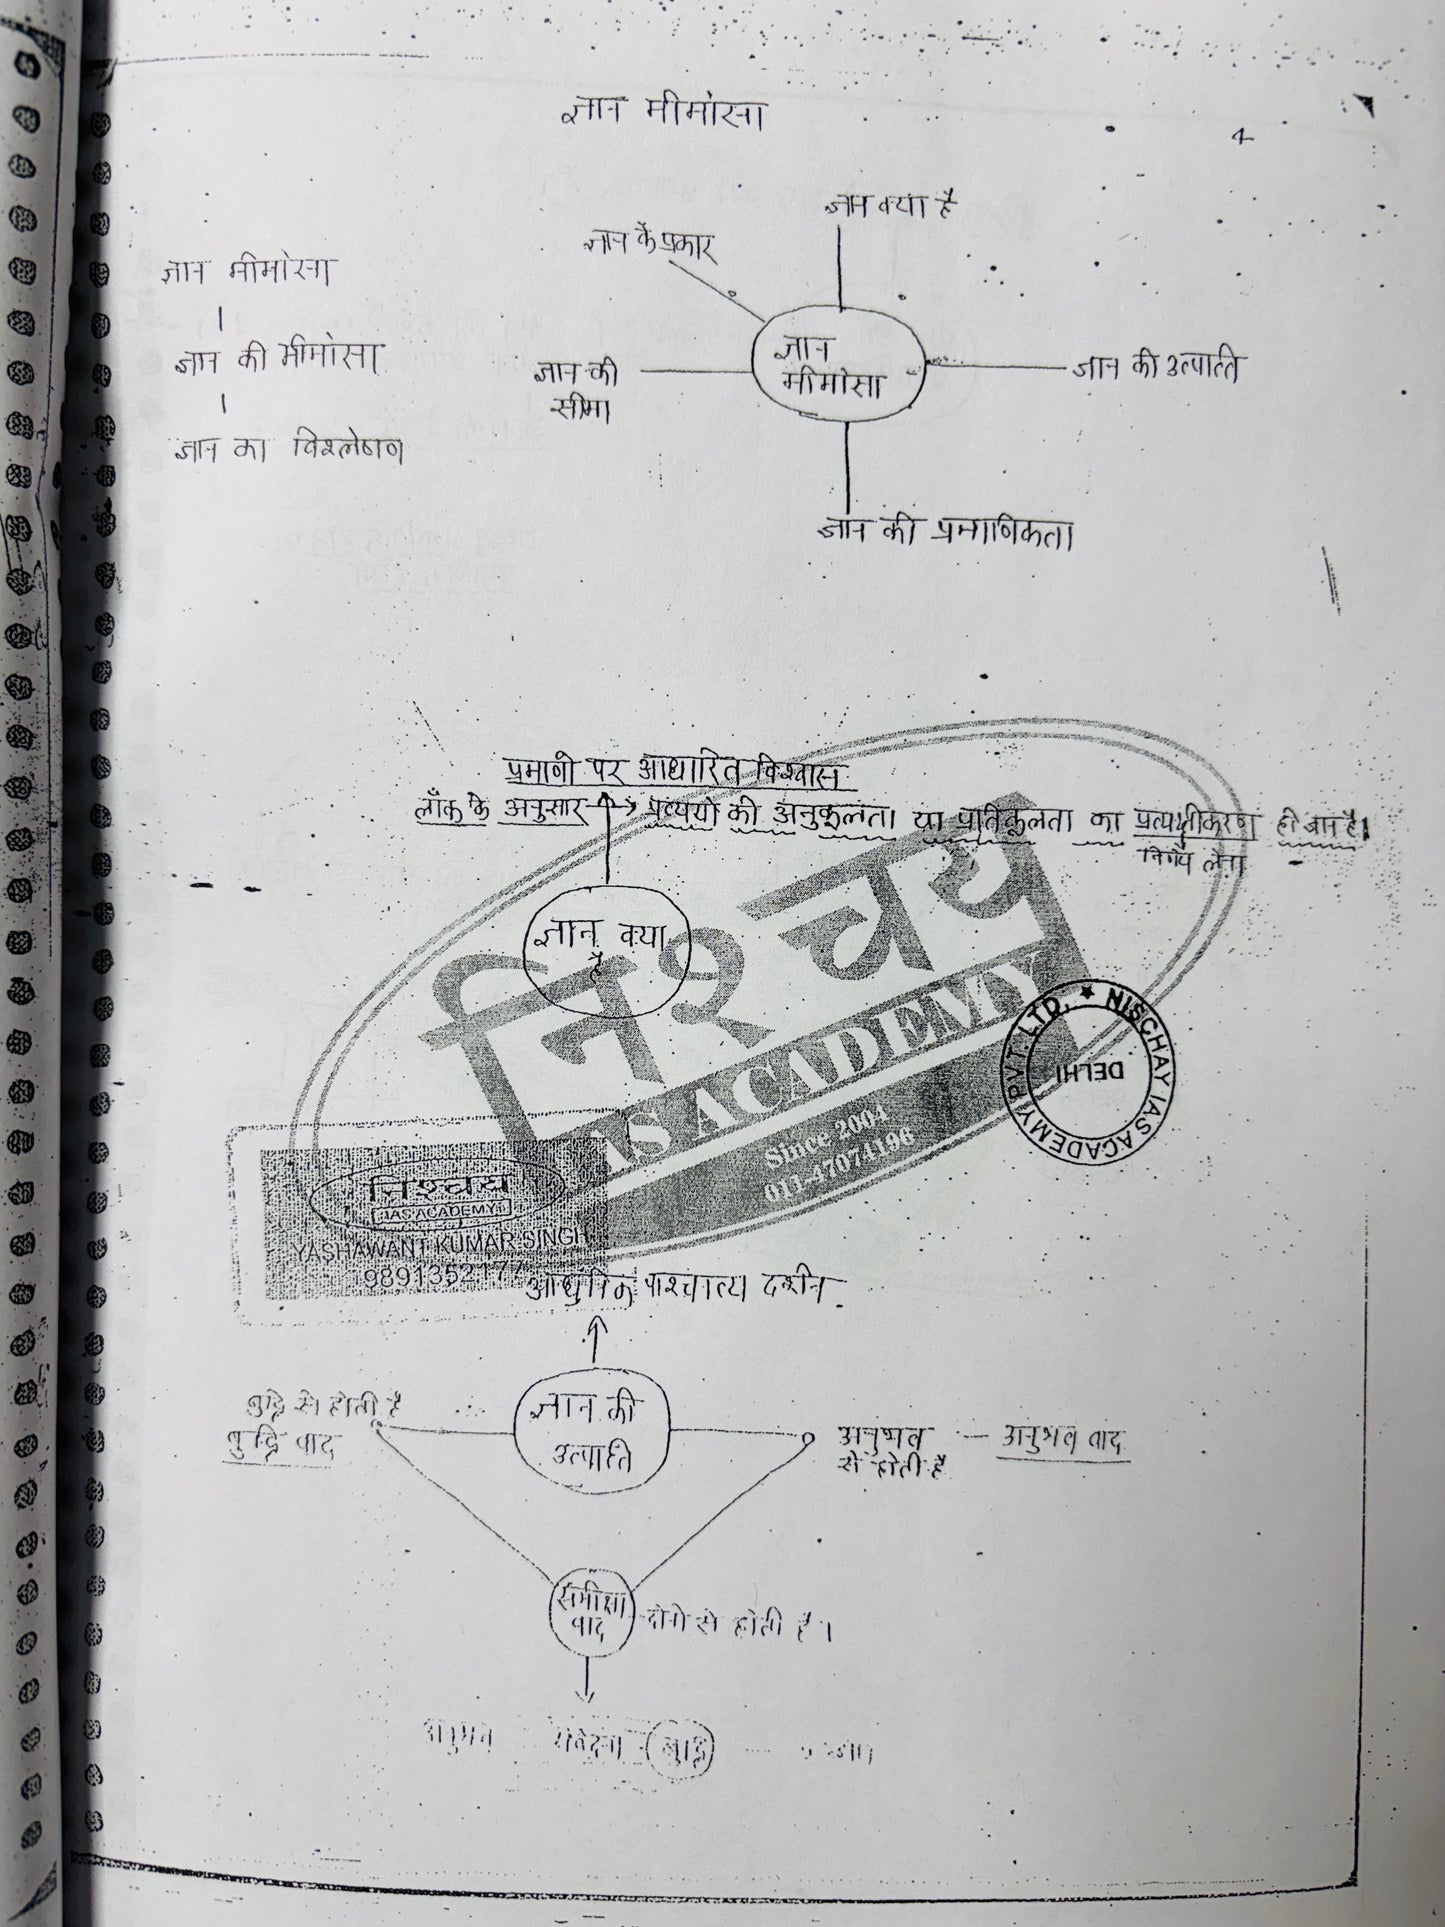 ज्ञान मीमांसा
4
ज्ञान क्या है
ज्ञान के प्रकार
ज्ञान मीमांसा
ज्ञान की मीमांसा
ज्ञान का विश्लेषण
ज्ञान
मीमांसा
ज्ञान की
सीमा
ज्ञान की उत्पत्ति
ज्ञान की प्रमाणिकता
प्रमाणो पर आधारित विश्वास
लॉक के अनुसार → प्रत्ययो की अनुकूलता या प्रतिकूलता का प्रत्यक्षीकरण ही ज्ञान है।
निर्णय लेना
ज्ञान क्या
है
निश्चय
IAS ACADEMY
Since 2004
011-47074196
NISCHAY IAS ACADEMY PVT. LTD. ★
DELHI
निश्चय
IAS ACADEMY
YASHAWANT KUMAR SINGH
9891352177
आधुनिक पाश्चात्य दर्शन
ज्ञान की
उत्पत्ति
बुद्धि से होती है
बुद्धि वाद
अनुभव — अनुभव वाद
से होती है
समीक्षा
वाद
दोनो से होती है।
अनुभव संवेदना बुद्धि